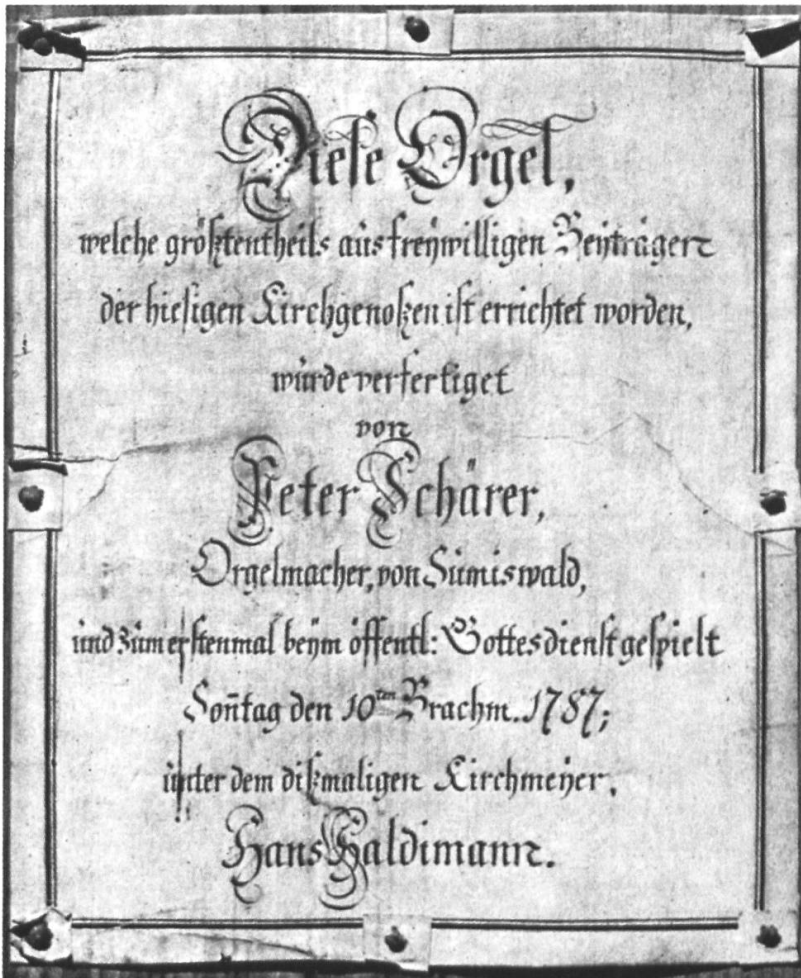 Diese Orgel,
welche größtentheils aus freÿwilligen Beÿträgen
der hiesigen Kirchgenoßen ist errichtet worden,
wurde verfertiget
von
Peter Schärer,
Orgelmacher, von Sumiswald,
und zum erstenmal beÿm öffentl: Gottesdienst gespielt
Soñtag den 10ten Brachm. 1787;
unter dem dißmaligen Kirchmeÿer,
Hans Haldimann.